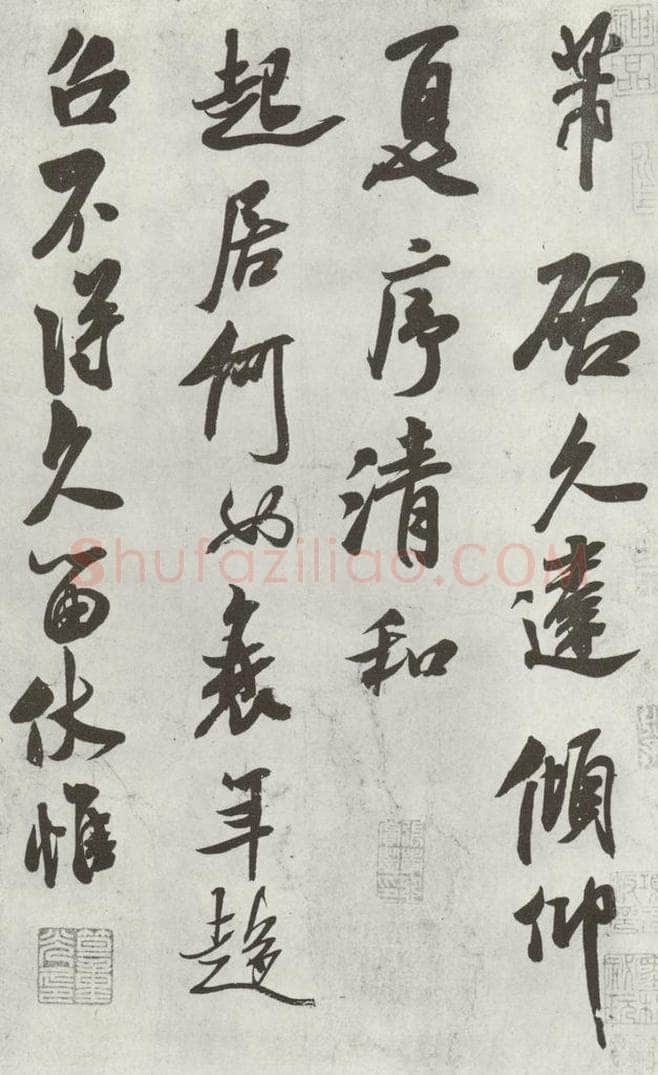 芾启久違傾仰
夏序清和
起居何如衰年趍
召不得久留伏惟
Shufaziliao.COM
神品